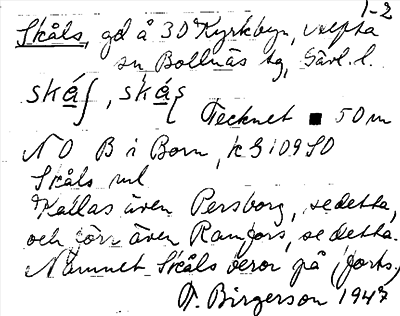 1-2
Skåls, gd å 3D Kyrkbyn, Alfta
sn Bollnäs tg, Gävl. l.
Tecknet ■ 50 m
NO B i Born, k G 109 SO
Skåls ml
Kallas även Persborg, se detta,
och förr även Ramfors, se detta.
Namnet Skåls beror på (forts.)
T. Birgerson 1947